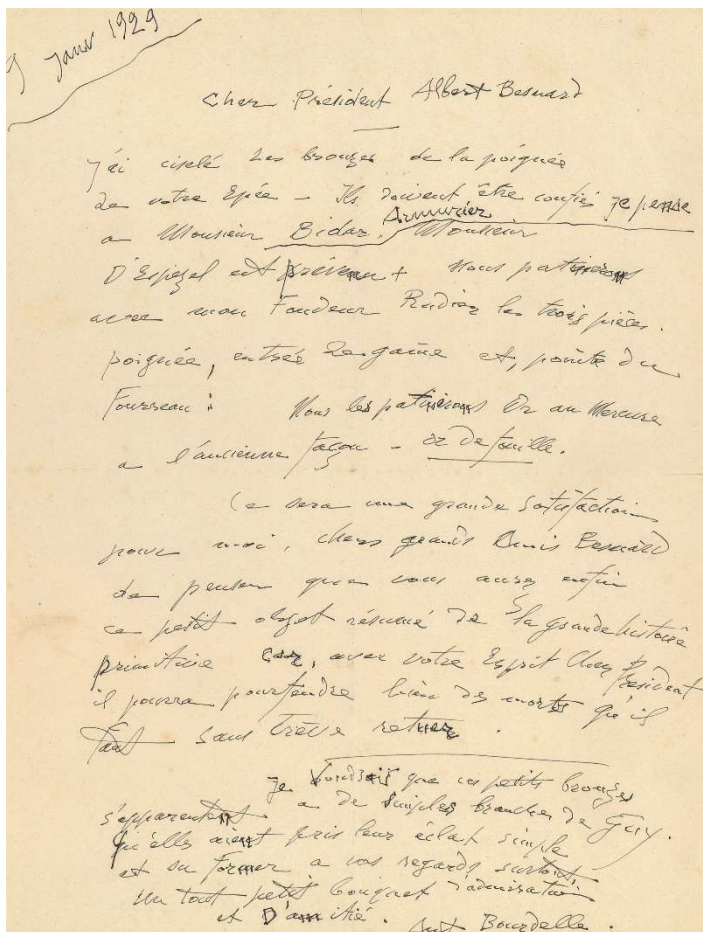 Janv 1929
Cher Président Albert Besnard
J'ai ciselé les bronzes de la poignée
de votre Epée - Ils doivent être confiés je pense
Armurier
a Monsieur Bidaz, Monsieur
D'Espezel est prévenu + Nous patinerons
avec mon Fondeur Rudier les trois pièces.
poignée, entrée de gaine et, pointe du
Fourreau : Nous les patinerons Or au Mercure
a l'ancienne façon - or de fouille.
Ce sera une grande satisfaction
pour moi, chers grands Amis Besnard
de penser que vous aurez enfin
ce petit objet résumé de la grande histoire
primitive car, avec votre Esprit Cher Président
il pourra pourfendre bien des morts qu'il
faut sans trève retuer.
Je voudrais que ces petits bronzes
s'apparentent a de simples branches de Guy.
Qu'elles aient pris leur éclat simple
et su former a vos regards surtout,
un tout petit bouquet d'admiration
et D'amitié. Ant Bourdelle.